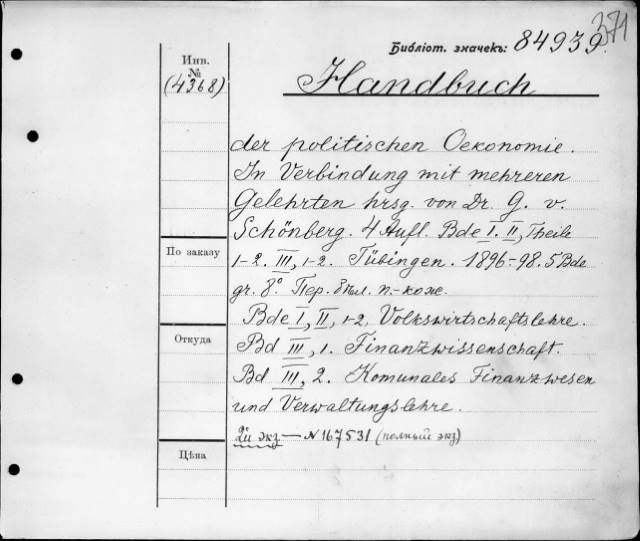 371
Библіот. значекъ: 84939.
Инв.
№
(4368)
Handbuch
der politischen Oekonomie.
In Verbindung mit mehreren
Gelehrten hrsg. von Dr. G. v.
Schönberg. 4 Aufl. Bde I. II, Theile
1-2. III, 1-2. Tübingen. 1896-98. 5 Bde
По заказу
gr. 8° Пер. п.-кож.
Bde I, II, 1-2, Volkswirtschaftslehre.
Откуда
Bd III, 1. Finanzwissenschaft.
Bd III, 2. Komunales Finanzwesen
und Verwaltungslehre.
2й экз — N 167531 (полный экз)
Цѣна